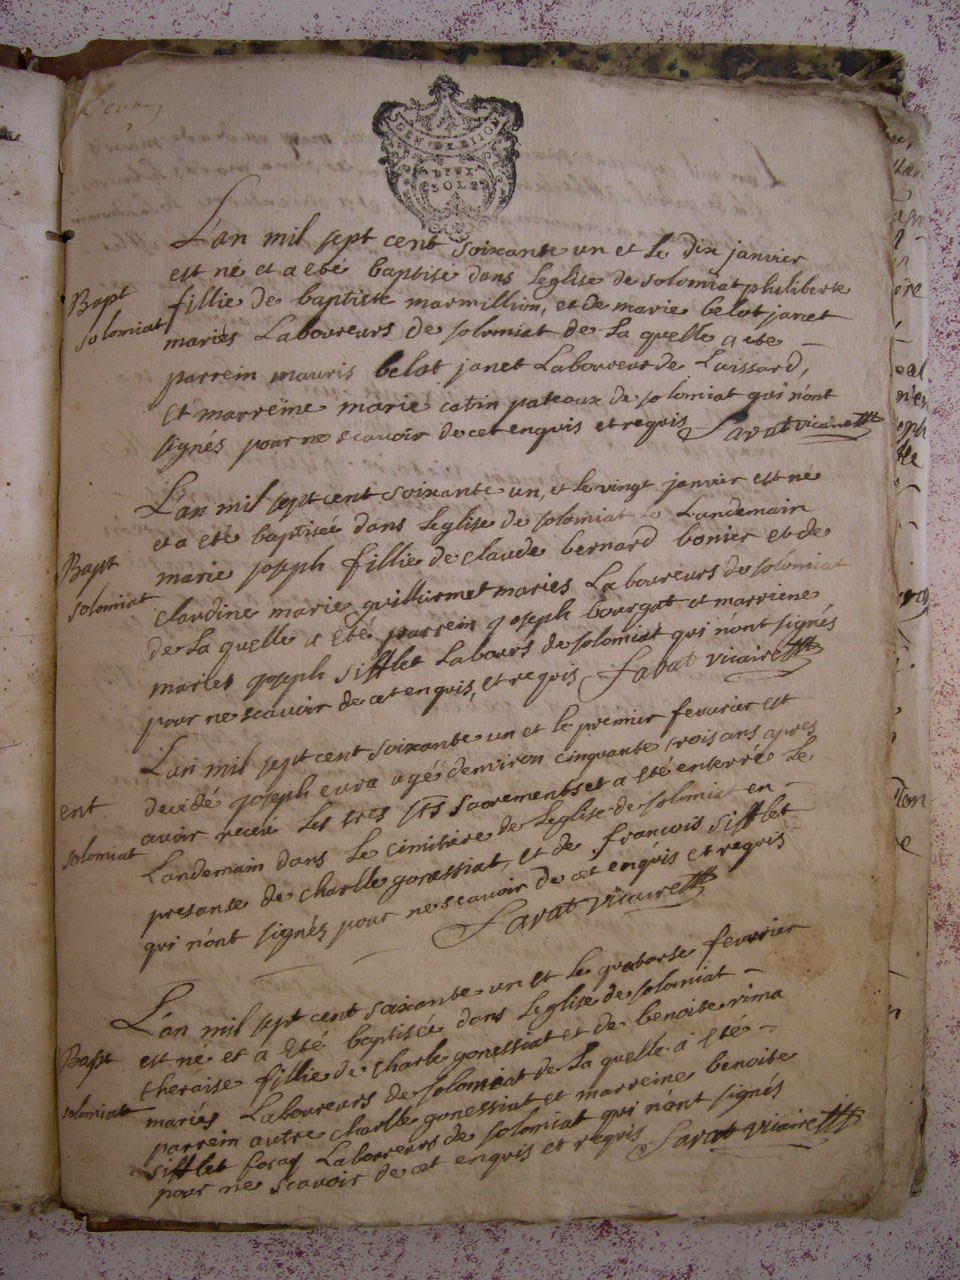 GEN DE DIJON
DEUX
SOLS
L'an mil sept cent soixante un et le dix janvier
est né et a eté baptise dans Leglise de solomiat philiberte
Bapt
solomiat
fillie de baptiste marmillion, et de marie belot janet
mariés Laboureurs de solomiat de La quelle a ete
parrein mauris belot janet Laboureur de Luissard,
Et marreine marie catin pateaux de solomiat qui n'ont
signés pour ne scavoir de cet enquis et requis Savat vicaire
L'an mil sept cent soixante un, et le vingt janvier est né
et a eté baptiseé dans Leglise de solomiat Le Landemain
Bapt
solomiat
marie joseph fillie de claude bernard bonier et de
claudine marie guilliermet mariés Laboureurs de solomiat
de La quelle a Eté parrein joseph bourgat et marriene
marie joseph sifflet Labours de solomiat qui n'ont signés
pour ne scavoir de cet enquis, et requis Savat vicaire
L'an mil sept cent soixante un et le premier fevurier est
ent
solomiat
decedé joseph eura ageé denviron cinquante trois ans apres
avoir receu Les tres sts sacrements et a Eté enterré Le
Landemain dans Le cimitiere de Leglise de solomiat en
presanse de charlle gonessiat, et de francois sifflet
qui n'ont signés pour ne scavoir de cet enquis et requis
Savat vicaire
L'an mil sept cent soixante un et le quatorse fevurier
est né et a Eté baptiseé dans Leglise de solomiat
Bapt
solomiat
theraise fillie de charle gonessiat et de benoite rima
mariés Laboureurs de solomiat de La quelle a Eté
parrein autre charlle gonessiat et marreine benoite
sifflet Laboureurs de solomiat qui n'ont signés
pour ne scavoir de cet enquis et requis Savat vicaire